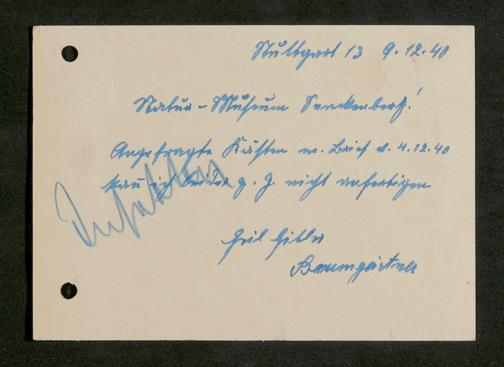 Stuttgart 13 9.12.40
Natur-Museum Senckenberg!
Angefragte Kästen m. Brief v. 4.12.40
kan ich leider z. Z. nicht anfertigen
Heil Hitler
Baumgärtner